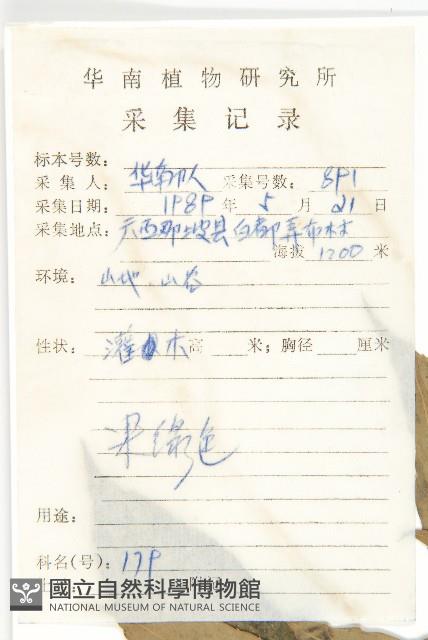 华南植物研究所
采集记录
标本号数：
采集人：华南队 采集号数：891
采集日期：1989年5月21日
采集地点：广西那坡县百都弄布林
海拔 1200 米
环境：山地、山谷
性状：灌木高 米；胸径 厘米
果绿色
用途：
科名(号)：179
國立自然科學博物館
NATIONAL MUSEUM OF NATURAL SCIENCE